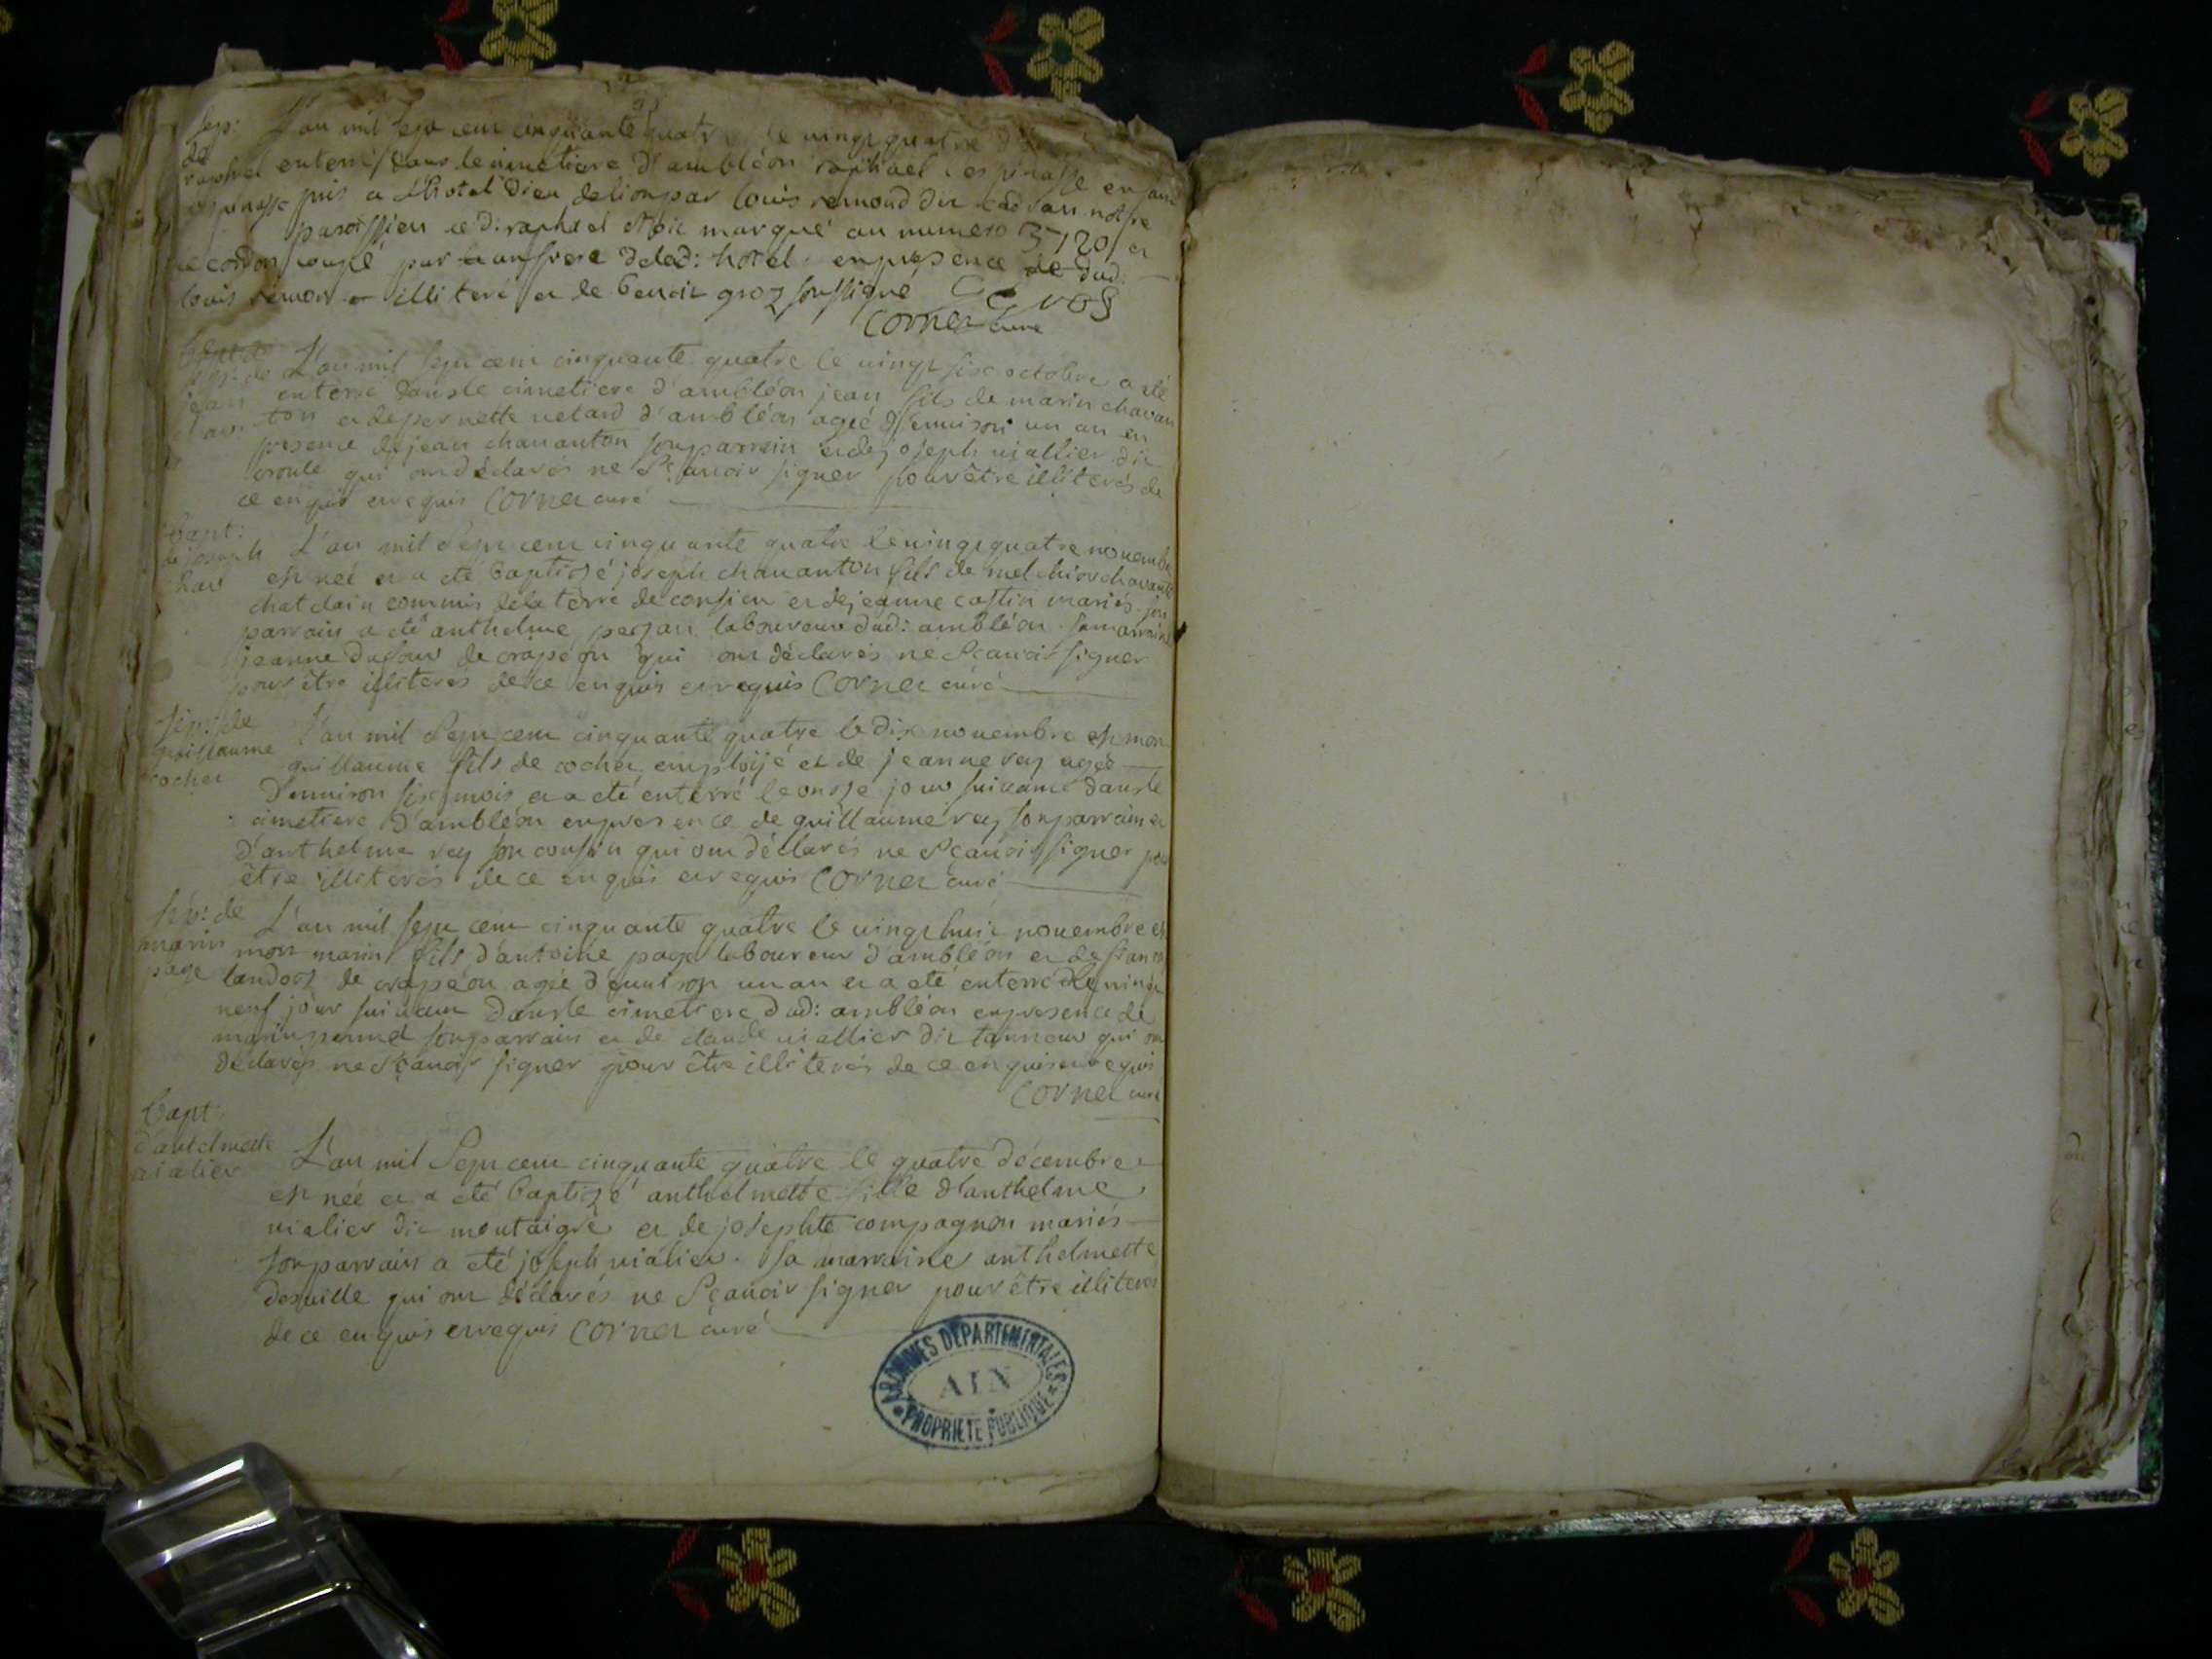 Sep: L'an mil sept cent cinquante quatre le vingt quatre
de
raphael enterré dans le cimetiere d'ambléon raphael espinasse enfant
espinasse pris a l'hotel Dieu de lion par louis remond dit notre
paroissien led: raphael etoit marqué au numero 5720 et
le cordon coupé par un frere delad: hotel en presence de dud.
louis remon illiteré et de benoit groz soussigné GGros
Cornet curé
Sep: de L'an mil sept cent cinquante quatre le vingt six octobre a eté
jean enterré dans le cimetiere d'ambléon jean fils de marin chavan
chav ton et de pernette velard d'ambléon agé d'environ un an en
presence de jean chavanton son parrain et de joseph viallier dit
qui ont déclarés ne sçavoir signer pour être illiterés de
ce enquis et requis Cornet curé
bapt:
de joseph L'an mil sept cent cinquante quatre le vingt quatre novembre
chav est neé et a eté baptizé joseph chavanton fils de melchior chavanto
chatelain commis de la terre de consieu et de jeanne castin mariés. son
parrain a eté anthelme perzan laboureur dud: ambléon. sa marraine
jeanne dufour de crapéon qui ont déclarés ne sçavoir signer
pour être illiteres de ce enquis et requis Cornet curé
Sep: de
guillaume L'an mil sept cent cinquante quatre le dix novembre est mort
cochet guillaume fils de cochet employé et de jeanne rey agés
d'environ six mois et a eté enterré le onze jour suivant dans le
cimetiere d'ambléon en presence de guillaume rey son parrain et
d'anthelme rey son cousin qui ont déclarés ne sçavoir signer pour
être illiterés de ce enquis et requis Cornet curé
Sep: de L'an mil sept cent cinquante quatre le vingt huit novembre est
marin mort marin fils d'antoine page laboureur d'ambléon et de
page landoz de crapéon agé d'environ un an et a eté enterré le vingt
neuf jour suivant dans le cimetiere dud: ambléon en presence de
marin pernet son parrain et de claude viallier dit tanneur qui ont
déclarés ne sçavoir signer pour être illiterés de ce enquis et requis
Cornet curé
bapt:
d'antelmette
vialier L'an mil sept cent cinquante quatre le quatre décembre
est née et a eté baptizé anthelmette fille d'anthelme
vialier dit montaigre et de josephte compagnon mariés
son parrain a eté joseph vialier. sa marraine anthelmette
desville qui ont déclarés ne sçavoir signer pour être illiterés
de ce enquis et requis Cornet curé
ARCHIVES DEPARTEMENTALES
AIN
PROPRIETE PUBLIQUE